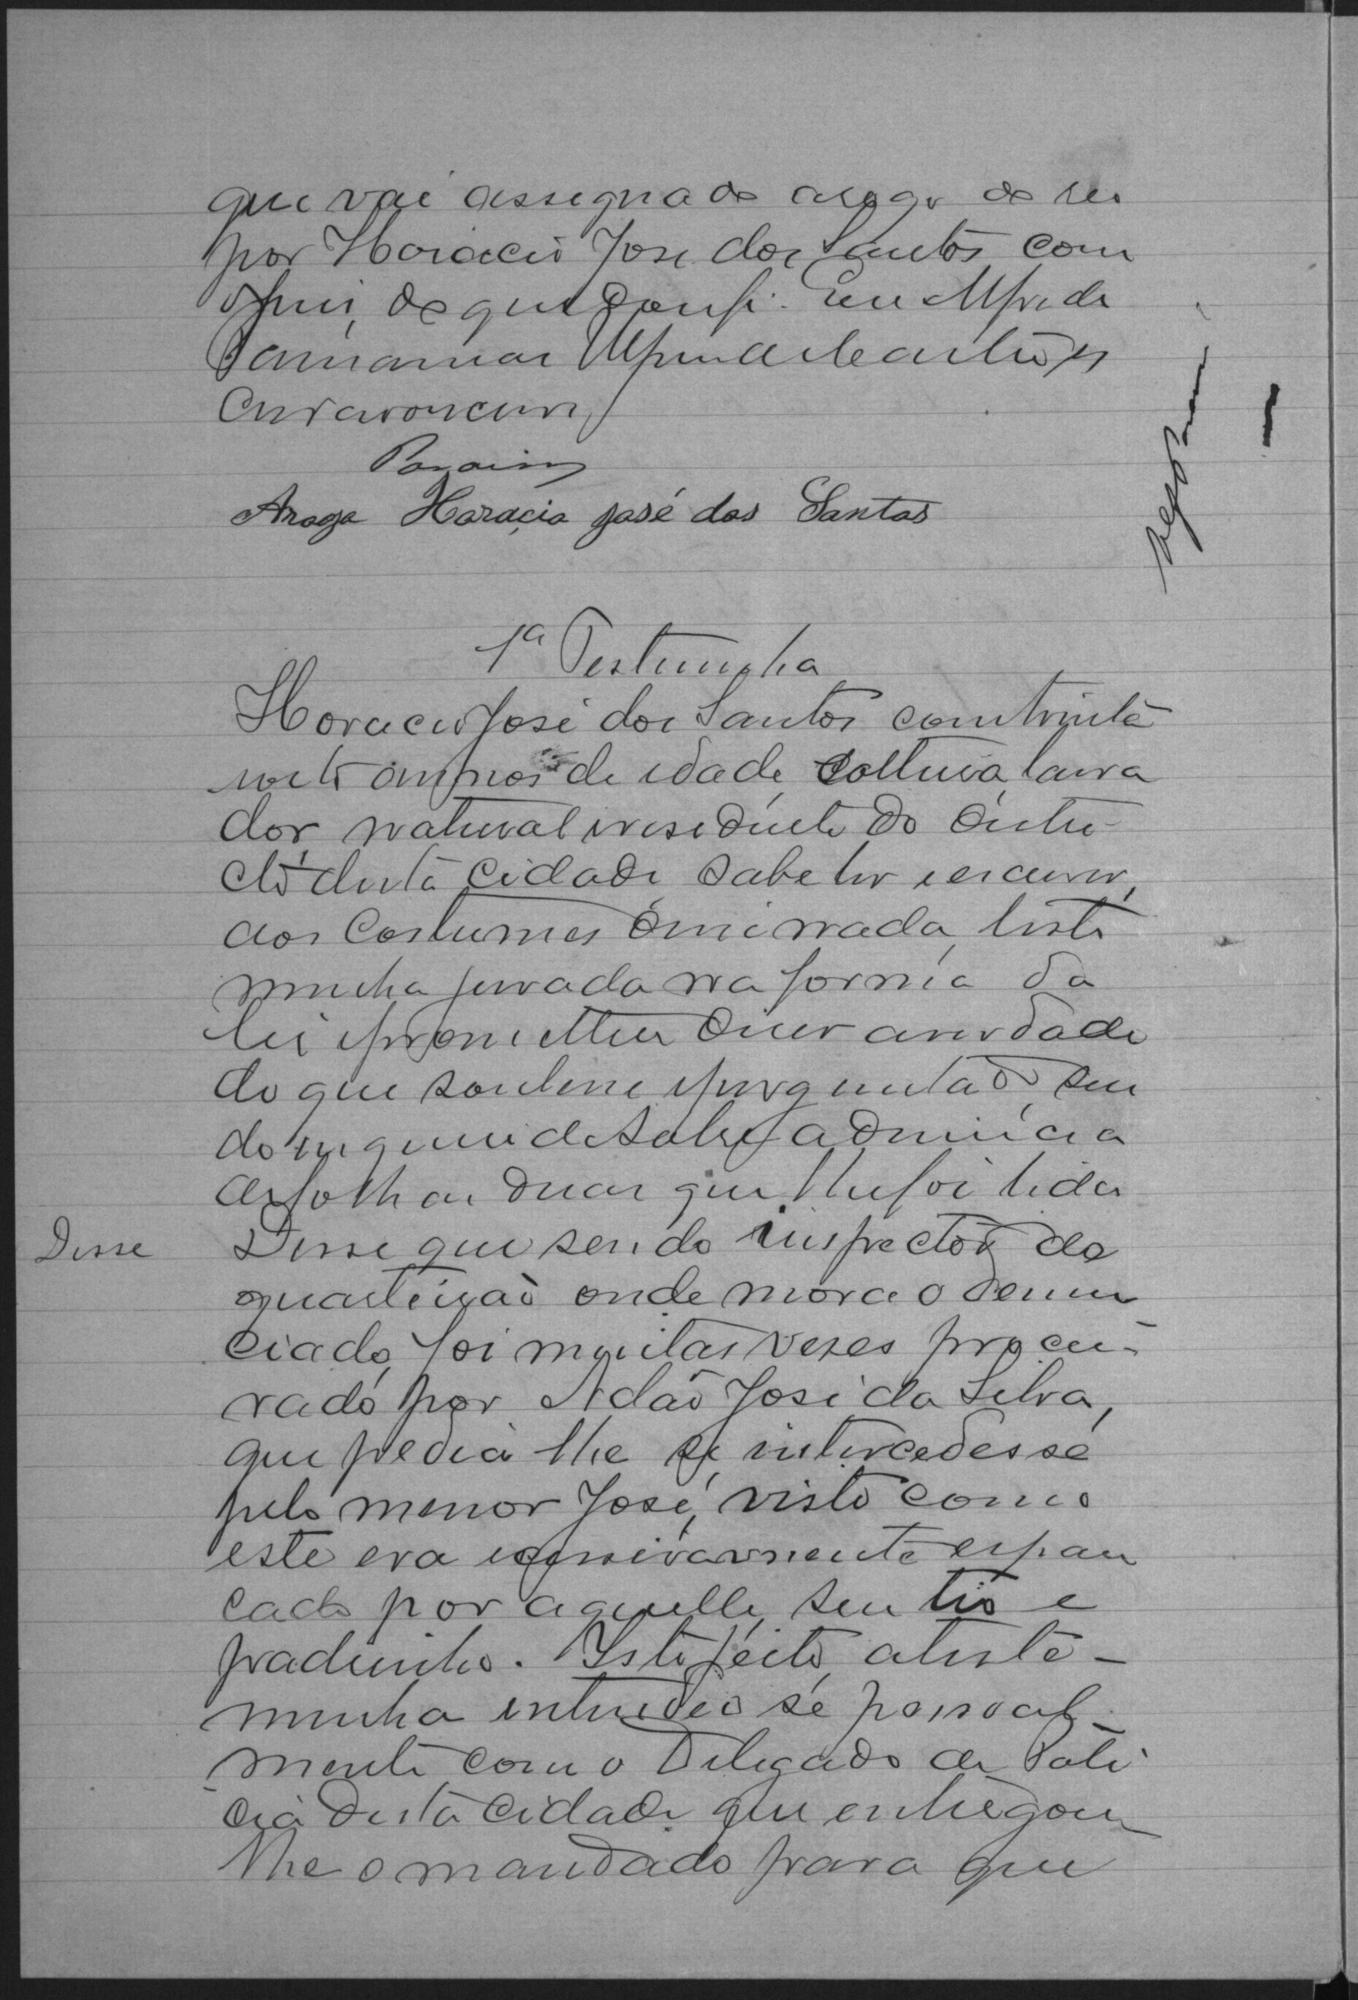 que vai assignado arogo do reu
por Horacio José dos Santos com
o juiz, do que dou fé. Eu Alfredo
escrivão
Aroga Horacio José dos Santos
1ª Testemunha
Horacio José dos Santos com trinta
annos de idade, solteiro, lavra
dor, natural e residente do distri
cto desta cidade, sabe ler e escrever,
aos costumes disse nada, teste
munha jurada na forma da
lei e prometteu dizer a verdade
do que soubesse e perguntado, sen
do inquirida sobre a denuncia
de folhas duas que lhe foi lida
Disse
Disse que sendo inspector do
quarteirão onde mora o denun
ciado, foi muitas vezes procu-
rado por Adão José da Silva,
que pedia lhe se intercedesse
pelo menor José, visto como
este era excessivamente espan
cado por aquelle seu tio e
padrinho. Isto feito, a teste-
munha entendeo se pessoal
mente com o Delegado de Poli
cia desta cidade que entregou
lhe o mandado para que